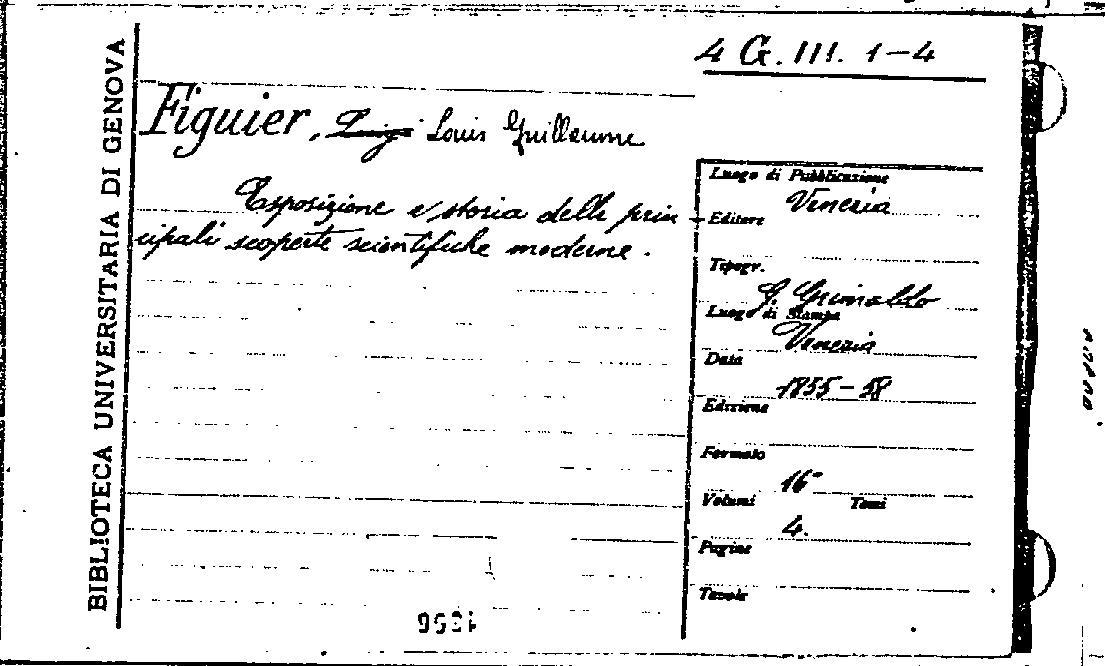 4 G. III. 1-4
BIBLIOTECA UNIVERSITARIA DI GENOVA
Figuier, Luigi Louis Guillaume
Esposizione e storia delle prin-
cipali scoperte scientifiche moderne.
Luogo di Pubblicazione
Venezia
Editore
Tipogr.
G. Grimaldo
Luogo di Stampa
Venezia
Data
1855-58
Edizione
Formato
16°
Volumi Tomi
4.
Pagine
Tavole